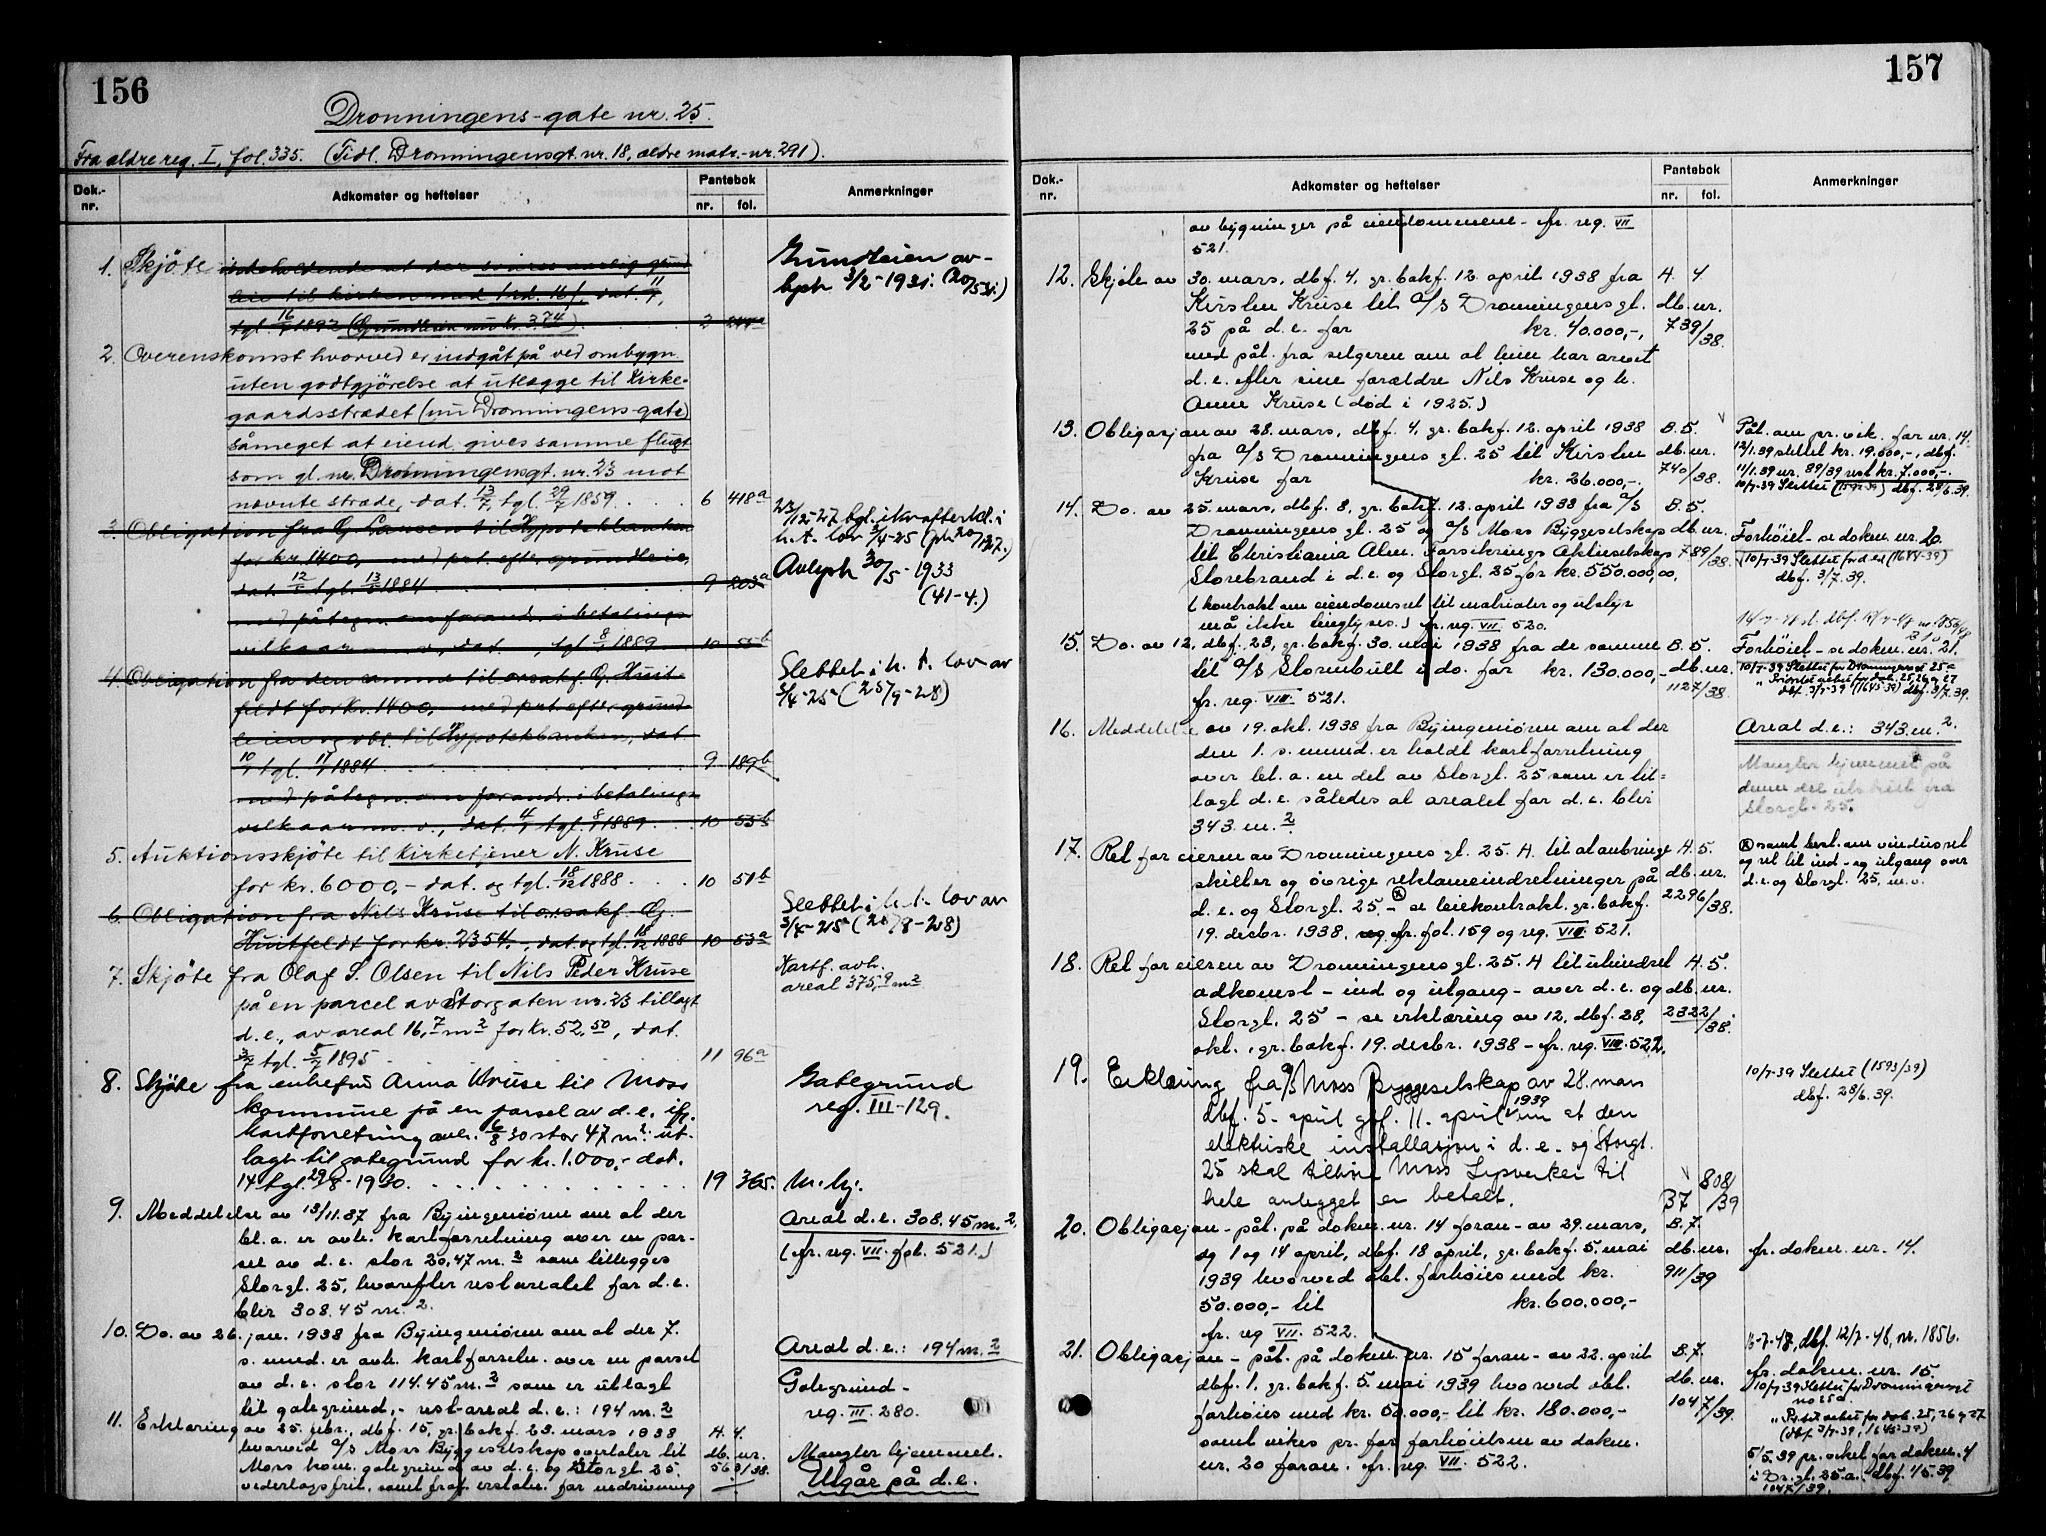 156
Dronningens-gate nr. 25.
Fra ældre reg. I, fol. 335. (Tidl. Dronningensgt. nr. 18, ældre matr.-nr. 291).
Dok.-nr.
Adkomster og heftelser
Pantebok
nr. fol.
Anmerkninger
1. Skjöte indeholdende at der svares aarlig grund
leie til kirken med 1 rd. 16 s, dat. 11/
tgl. 16/ 1892 (Grundleien nu kr. 3,74).
Grundleien av-
løst 3/2-1931. (20/5 31.)
2. Overenskomst hvorved er indgåt på ved ombygn.
uten godtgjörelse at utlægge til Kirke-
gaardsstrædet (nu Dronningens-gate)
såmeget at eiend. gives samme flugt
som gl. nr. Dronningensgt. nr. 23 mot
nævnte stræde, dat. 13/7 tgl. 29/7 1859. 6 418a
3. Obligation fra G. Larsen til Hypotekbanken
for kr. 1400, med prt. efter grundleie,
dat. 12/ tgl. 13/ 1884 9 203a
med påtegn. om forandr. i betalings-
vilkaar m. v., dat. , tgl. 8/ 1889 10 55b
23/12-27 bgl. i kraft erkl. i
h. t. lov 3/4-25
Avlyst 30/5-1933
(41-4.)
4. Obligation fra den samme til orsakf. G. Huit-
feldt for kr. 1400,- med prt. efter grund-
leien og obl. til Hypotekbanken, dat.
10/ tgl. 11/ 1884 9 189b
med påtegn. om forandr. i betalings-
vilkaar m. v., dat. 4/ tgl. 8/ 1889. 10 55b
Slettet i h. t. lov av
3/4-25 (25/9-28)
5. Auktionsskjöte til Kirketjener N. Kruse
for kr. 6000,- dat. og tgl. 18/12 1888. 10 51b
6. Obligation fra Nils Kruse til orsakf. G.
Huitfeldt for kr. 2354.-, dat. og tgl. 18/12 1888 10 53a
Slettet i h. t. lov av
3/4-25
7. Skjöte fra Olaf S. Olsen til Nils Peder Kruse
på en parcel av Storgaten nr. 23 tillagt
d. e., av areal 16,7 m2 for kr. 52,50, dat.
3/7 tgl. 5/7 1895 11 96a
Kartf. avh.
areal 375,9 m2
8. Skjöte fra enkefru Anna Kruse til Moss
kommune på en parsel av d. e. ifg.
kartforretning avh. 6/8 30 stor 47 m2 ut-
lagt til gategrund for kr. 1.000,- dat.
14 tgl. 29/8-1930. 19 365.
Gategrund
reg. III-129.
9. Meddelelse av 13/11.37 fra Byingeniøren om at der
bl. a. er avh. kartforretning over en par-
sel av d. e. stor 20,47 m.2 som tillegges
Storgt. 25, hvorefter restarealet for d. e.
blir 308.45 m.2.
Areal d. e. 308.45 m.2
(fr. reg. VII. fol. 521.)
10. Do. av 26. jan. 1938 fra Byingeniøren om at der 7.
s. mnd. er avh. kartforretn. over en parsel
av d. e. stor 114.45 m.2 som er utlagt
til gategrund,- rest-areal d. e.: 194 m.2
Areal d. e.: 194 m.2
Gategrund-
reg. III. 280.
11. Erklæring av 25. febr., dbf. 15, gr. bakf. 23. mars 1938 A. 4.
hvorved A/S Moss Byggeselskap overlater til db. nr.
Moss kom. gategrund av d. e. og Storgt. 25. 563/38.
vederlagsfrit, samt frafr. erstatn. for nedrivning
Mangler hjemmel.
Utgår på d. e.
157
Dok.-nr.
Adkomster og heftelser
Pantebok
nr. fol.
Anmerkninger
av bygninger på eiendommene - fr. reg. VII
521.
12. Skjøte av 30. mars, dbf. 4, gr. bakf. 12. april 1938 fra A. 4
Kirsten Kruse til A/S Dronningens gt. db. nr.
25 på d. e. for kr. 40.000,-, 739/38.
med påt. fra selgeren om at hun har arvet
d. e. efter sine forældre Nils Kruse og h.
Anne Kruse (død i 1925.)
13. Obligasjon av 28. mars, dbf. 4, gr. bakf. 12. april 1938 B. 5.
fra A/S Dronningens gt. 25 til Kirsten db. nr.
Kruse for kr. 26.000,-. 740/38.
Påt. om pr. vik. for nr. 14.
12/1.39 slettet kr. 19.000,-, dbf.
11/1.39 nr. 89/39 rest kr. 7.000,-.
10/7-39 Slettet (1592-39) dbf. 28/6.39.
14. Do. av 25. mars, dbf. 8, gr. bakf. 12. april 1938 fra A/S B. 5.
Dronningens gt. 25 og A/S Moss Byggeselskap db. nr.
til Christiania Alm. Forsikrings Aktieselskap 789/38.
Storebrand i d. e. og Storgt. 25 for kr. 550.000,00,
(kontrakt om eiendomsret til matrialer og utstyr
må ikke tinglyses.) fr. reg. VII. 520.
Forhöiet - se dokm. nr. 20.
10/7-39 Slettet for d. e. (1644-39)
dbf. 3/7.39.
15. Do. av 12, dbf. 23, gr. bakf. 30. mai 1938 fra de samme B. 5.
til A/S Stormbull i do. for kr. 130.000,- db. nr.
fr. reg. VIII. 521. 1127/38.
Forhöiet - se dokm. nr. 21.
10/7-39 Slettet for Dronningensgt 25a
" Prioritet veket for dok. 25, 26 og 27
dbf. 3/7-39 (1645-39) dbf. 3/7.39.
16. Meddelelse av 19. okt. 1938 fra Byingeniøren om at der
den 1. s. mnd. er holdt kartforretning
over bl. a. en del av Storgt. 25 som er til-
lagt d. e. således at arealet for d. e. blir
343. m.2.
Areal d. e.: 343. m.2.
Mangler hjemmel på
denne del utskilt fra
Storgt. 25.
17. Ret for eieren av Dronningens gt. 25. A. til at anbringe A. 5.
skilter og övrige reklameindretninger på db. nr.
d. e. og Storgt. 25,- se leiekontrakt. gr. bakf. 2296/38.
19. desbr. 1938. fr. fol. 159 og reg. VIII 521.
samt best. om vindusret
og ret til ind- og utgang over
d. e. og Storgt. 25, m. v.
18. Ret for eieren av Dronningens gt. 25. A til uhindret A. 5.
adkomst - ind og utgang - over d. e. og db. nr.
Storgt. 25 - se erklæring av 12, dbf. 28, 2322/38.
okt., gr. bakf. 19. desbr. 1938 - fr. reg. VIII. 522.
19. Erklæring fra A/S Moss Byggeselskap av 28. mars
dbf. 5- april gbf. 11. april 1939 om at den
elektriske installasjon i d. e. og Storgt.
25 skal tilhöre Moss Lysverker til
hele anlegget er betalt. B7 808/39
10/7-39 Slettet (1593/39)
dbf. 28/6.39.
20. Obligasjon - påt. på dokm. nr. 14 foran - av 29. mars, B. 7.
og 1 og 14 april, dbf. 18 april, gr. bakf. 5. mai db. nr.
1939 hvorved obl. forhøies med kr. 911/39
50.000,- til kr. 600.000,-
fr. reg VII. 522.
fr. dokm. nr. 14.
21. Obligasjon - påt. på dokm. nr. 15 foran - av 22. april B. 7.
dbf. 1. gr. bakf. 5. mai 1939 hvorved obl. db. nr.
forhöies med kr. 50.000,- til kr. 180.000,- 1047/39.
samt vikes pr. for forhöielsen av dokm.
nr. 20 foran. fr. reg. VII. 522.
dbf. 12/7-48, nr. 1856.
fr. dokm. nr. 15.
10/7-39 Slettet for Dronningensgt
no 25 a.
" Priset veket for dok. 25, 26 og 27
(dbf. 3/7-39, 1645-39)
5/5.39 pr. veket for dokm. 4
i Dr. gt. 25.a. dbf. 1/5.39
1047/39.